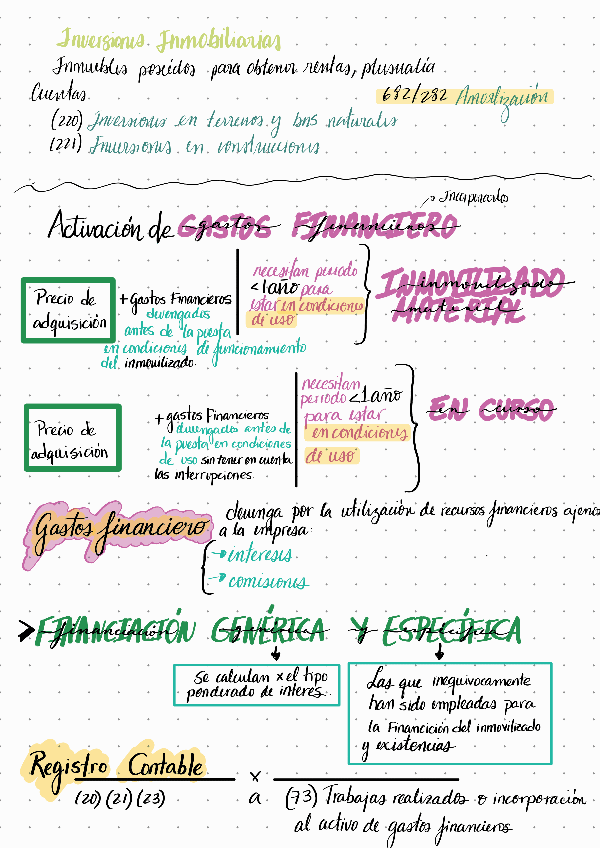 Inversiones Inmobiliarias
Inmuebles poseídos para obtener rentas, plusvalía
Cuentas
682/282 Amortización
(220) Inversiones en terrenos y bns naturales
(221) Inversiones en construcciones
→ Incorporarlos
Activación de GASTOS FINANCIERO
Precio de
adquisición
+ Gastos Financieros
devengados
antes de la puesta
en condiciones de funcionamiento
del inmovilizado.
necesitan periodo
<1año para
estar en condiciones
de uso
INMOVILIZADO
MATERIAL
Precio de
adquisición
+ gastos Financieros
devengados antes de
la puesta en condiciones
de uso sin tener en cuenta
las interrupciones.
necesitan
periodo <1año
para estar
en condiciones
de uso
EN CURSO
Gastos financiero
devenga por la utilización de recursos financieros ajeno
a la empresa.
→ intereses
→ comisiones
> FINANCIACIÓN GENÉRICA Y ESPECÍFICA
Se calculan x el tipo
ponderado de interes.
Las que inequivocamente
han sido empleadas para
la Financición del inmovilizado
y existencias
Registro Contable
x
(20) (21) (23) a (73) Trabajas realizados o incorporación
al activo de gastos financieros